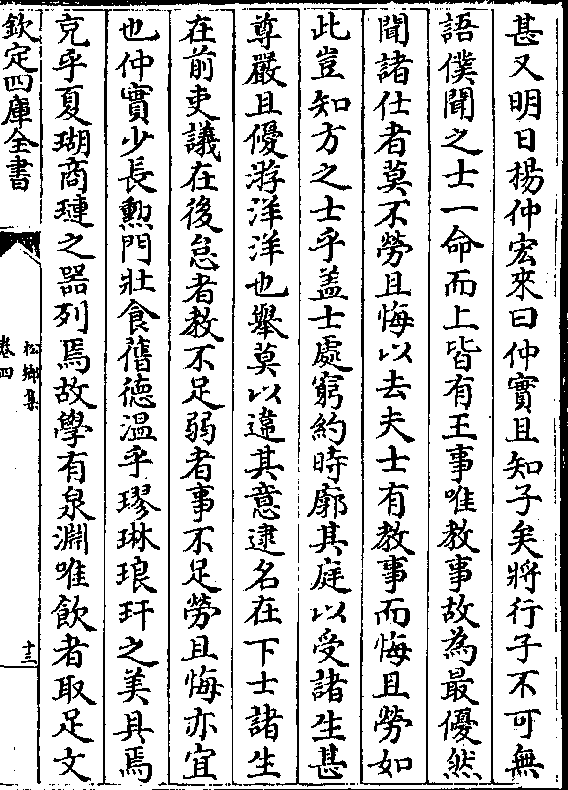 甚又明日楊仲宏來曰仲實且知子矣將行子不可無
語僕聞之士一命而上皆有王事唯教事故為最優然
聞諸仕者莫不勞且悔以去夫士有教事而悔且勞如
此豈知方之士乎盖士處窮約時廓其庭以受諸生甚
尊嚴且優游洋洋也舉莫以違其意逮名在下士諸生
在前吏議在後怠者教不足弱者事不足勞且悔亦宜
也仲實少長勲門壯食舊德温乎璆琳琅玕之美具焉
克乎夏瑚商璉之器列焉故學有泉淵唯飲者取足文
欽定四庫全書
松鄉集
卷四
十三